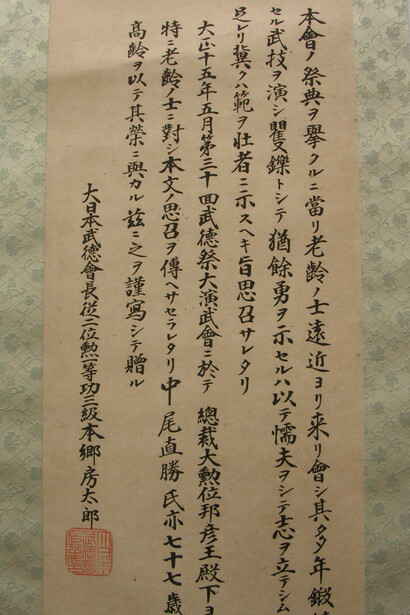 本會ノ祭典ヲ擧クルニ當リ老齡ノ士遠近ヨリ来リ會シ其多年鍛
セル武技ヲ演シ矍鑠トシテ猶餘勇ヲ示セルハ以テ懦夫ヲシテ志ヲ立テシム
足レリ冀クハ範ヲ壯者ニ示スヘキ旨思召サレタリ
大正十五年五月第三十回武德祭大演武會ニ於テ 總裁大勲位邦彦王殿下ヨ
特ニ老齡ノ士ニ對シ本文ノ思召ヲ傳ヘサセラレタリ中尾直勝氏亦七十七歳
高齡ヲ以テ其榮ニ與カル茲ニ之ヲ謹寫シテ贈ル
大日本武德會長從二位勲一等功三級本郷房太郎